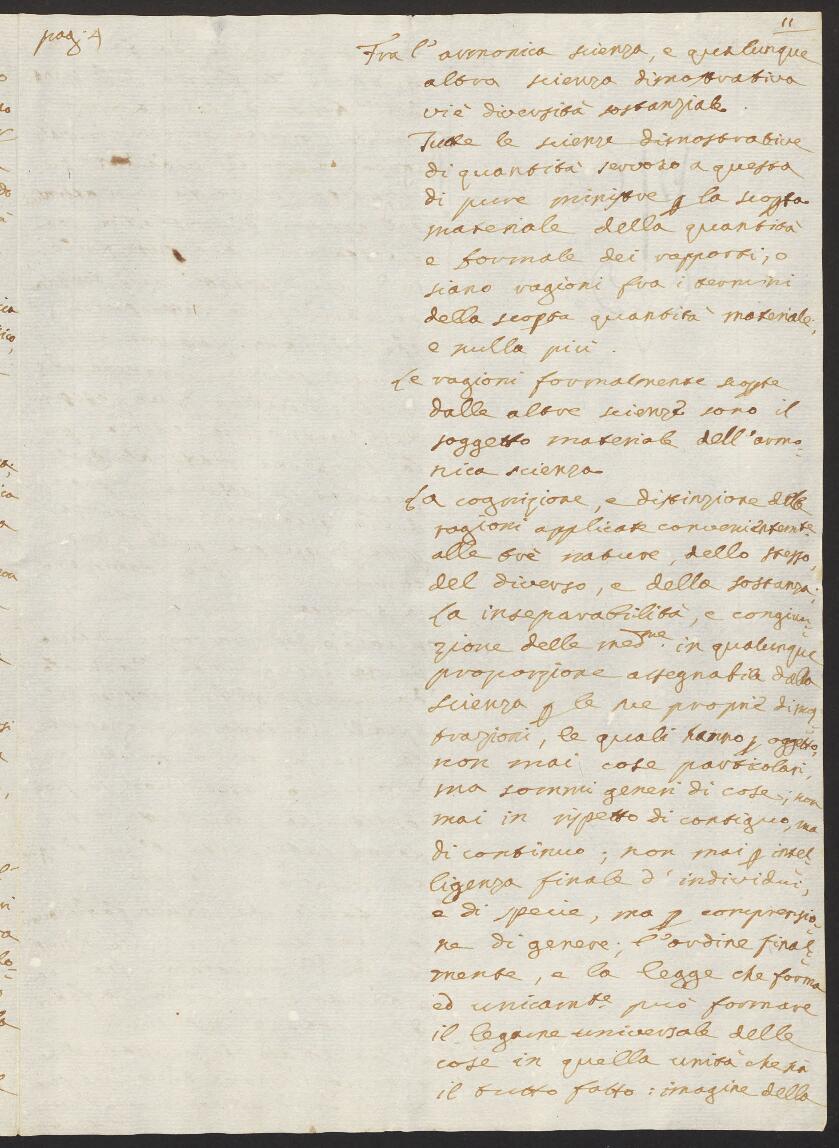 11
pag: 4
Fra l'armonica scienza, e qualunque
altra scienza dimostrativa
vi è diversità sostanziale.
Tutte le scienze dimostrative
di quantità servono a questa
di pure ministre p la scopta
materiale della quantità
e formale dei rapporti, o
siano ragioni fra i termini
della scopta quantità materiale;
e nulla più.
Le ragioni formalmente scopte
dalle altre scienze sono il
soggetto materiale dell'armo-
nica scienza
La cognizione, e distinzione delle
ragioni applicate convenientemte
alle trè nature, dello stesso,
del diverso, e della sostanza;
La inseparabilità, e congiun-
zione delle medme in qualunque
proporzione assegnabile dalla
scienza p le sue proprie dimos-
trazioni, le quali hanno p oggetto,
non mai cose particolari,
ma sommi generi di cose; non
mai in rispetto di contiguo, ma
di continuo; non mai p intel-
ligenza finale d'individui,
e di specie, ma p comprensio-
ne di genere; l'ordine final-
mente, e la legge che forma
ed unicamte può formare
il legame universale delle
cose in quella unità che
il tutto fatto: imagine della